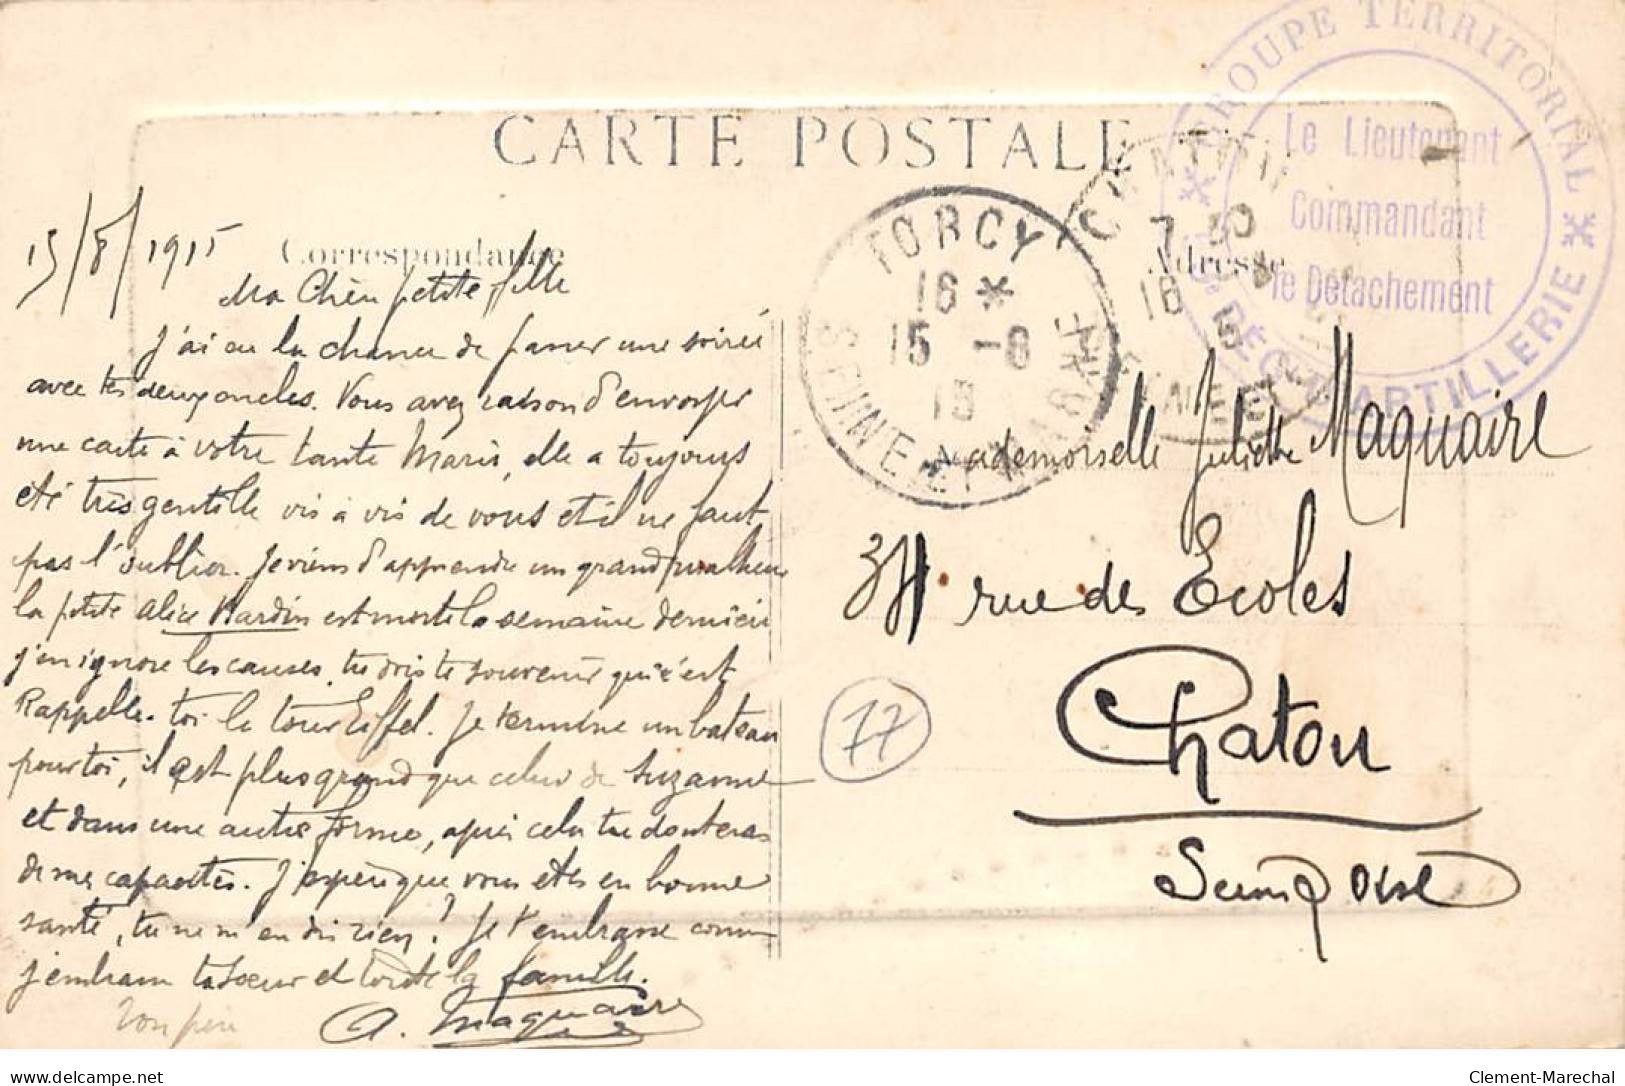 CARTE POSTALE
Correspondance
Adresse
GROUPE TERRITORIAL
Le Lieutenant
Commandant
le Détachement
D'ARTILLERIE
TORCY
16 *
15 -8
15
SEINE ET MARNE
CHATOU
7 30
16
15/8/1915
Ma Chère petite fille
J'ai eu la chance de passer une soirée
avec tes deux oncles. Vous avez raison d'envoyer
une carte à votre tante Marie, elle a toujours
été très gentille vis à vis de vous et il ne faut
pas l'oublier. Je viens d'apprendre un grand malheur
la petite Alice Hardin est morte la semaine dernière
j'en ignore les causes, tu dois te souvenir qui c'est
Rappelle-toi la tour Eiffel. Je termine un bateau
pour toi, il est plus grand que celui de Suzanne
et dans une autre forme, après cela tu douteras
de mes capacités. J'espère que vous êtes en bonne
santé, tu ne m'en dis rien? Je t'embrasse comme
j'embrasse ta sœur et toute la famille.
Ton père A. Maquaire
Mademoiselle Juliette Maquaire
34 rue des Ecoles
Chatou
Seine & Oise
77
www.delcampe.net
Clement-Marechal